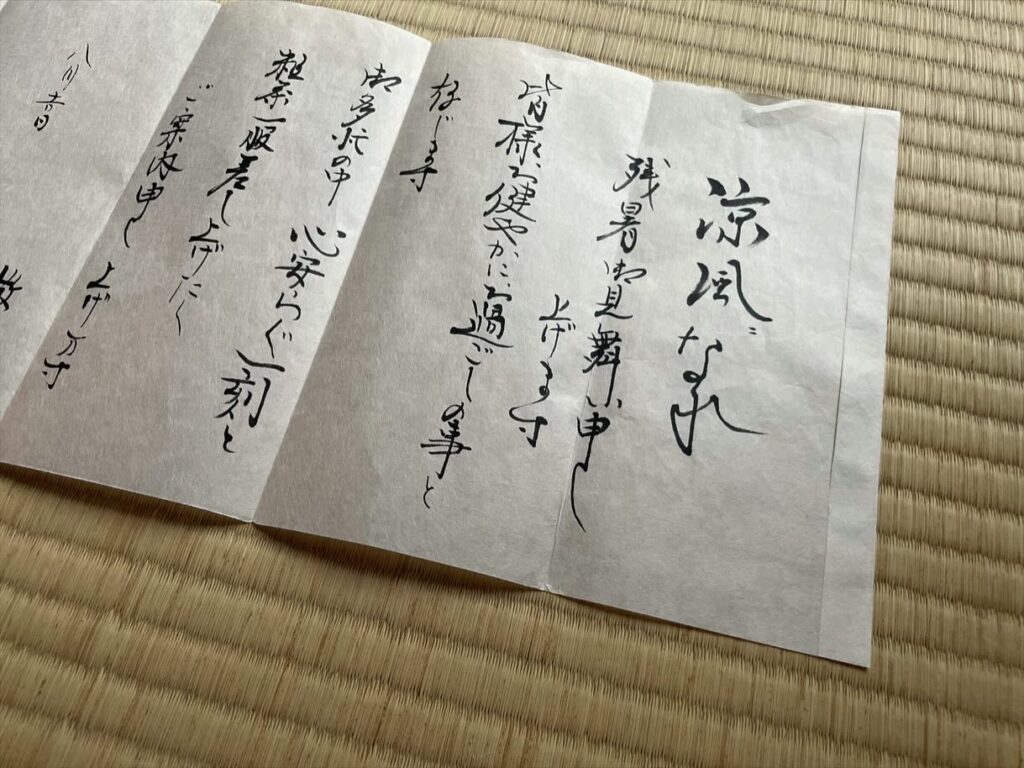 涼風なれ
残暑御見舞い申し
上げます
皆様お健やかにお過ごしの事と
存じます
御多忙の中 心安らぐ一刻と
粗茶一服差し上げたく
ご案内申し上げます
八月吉日